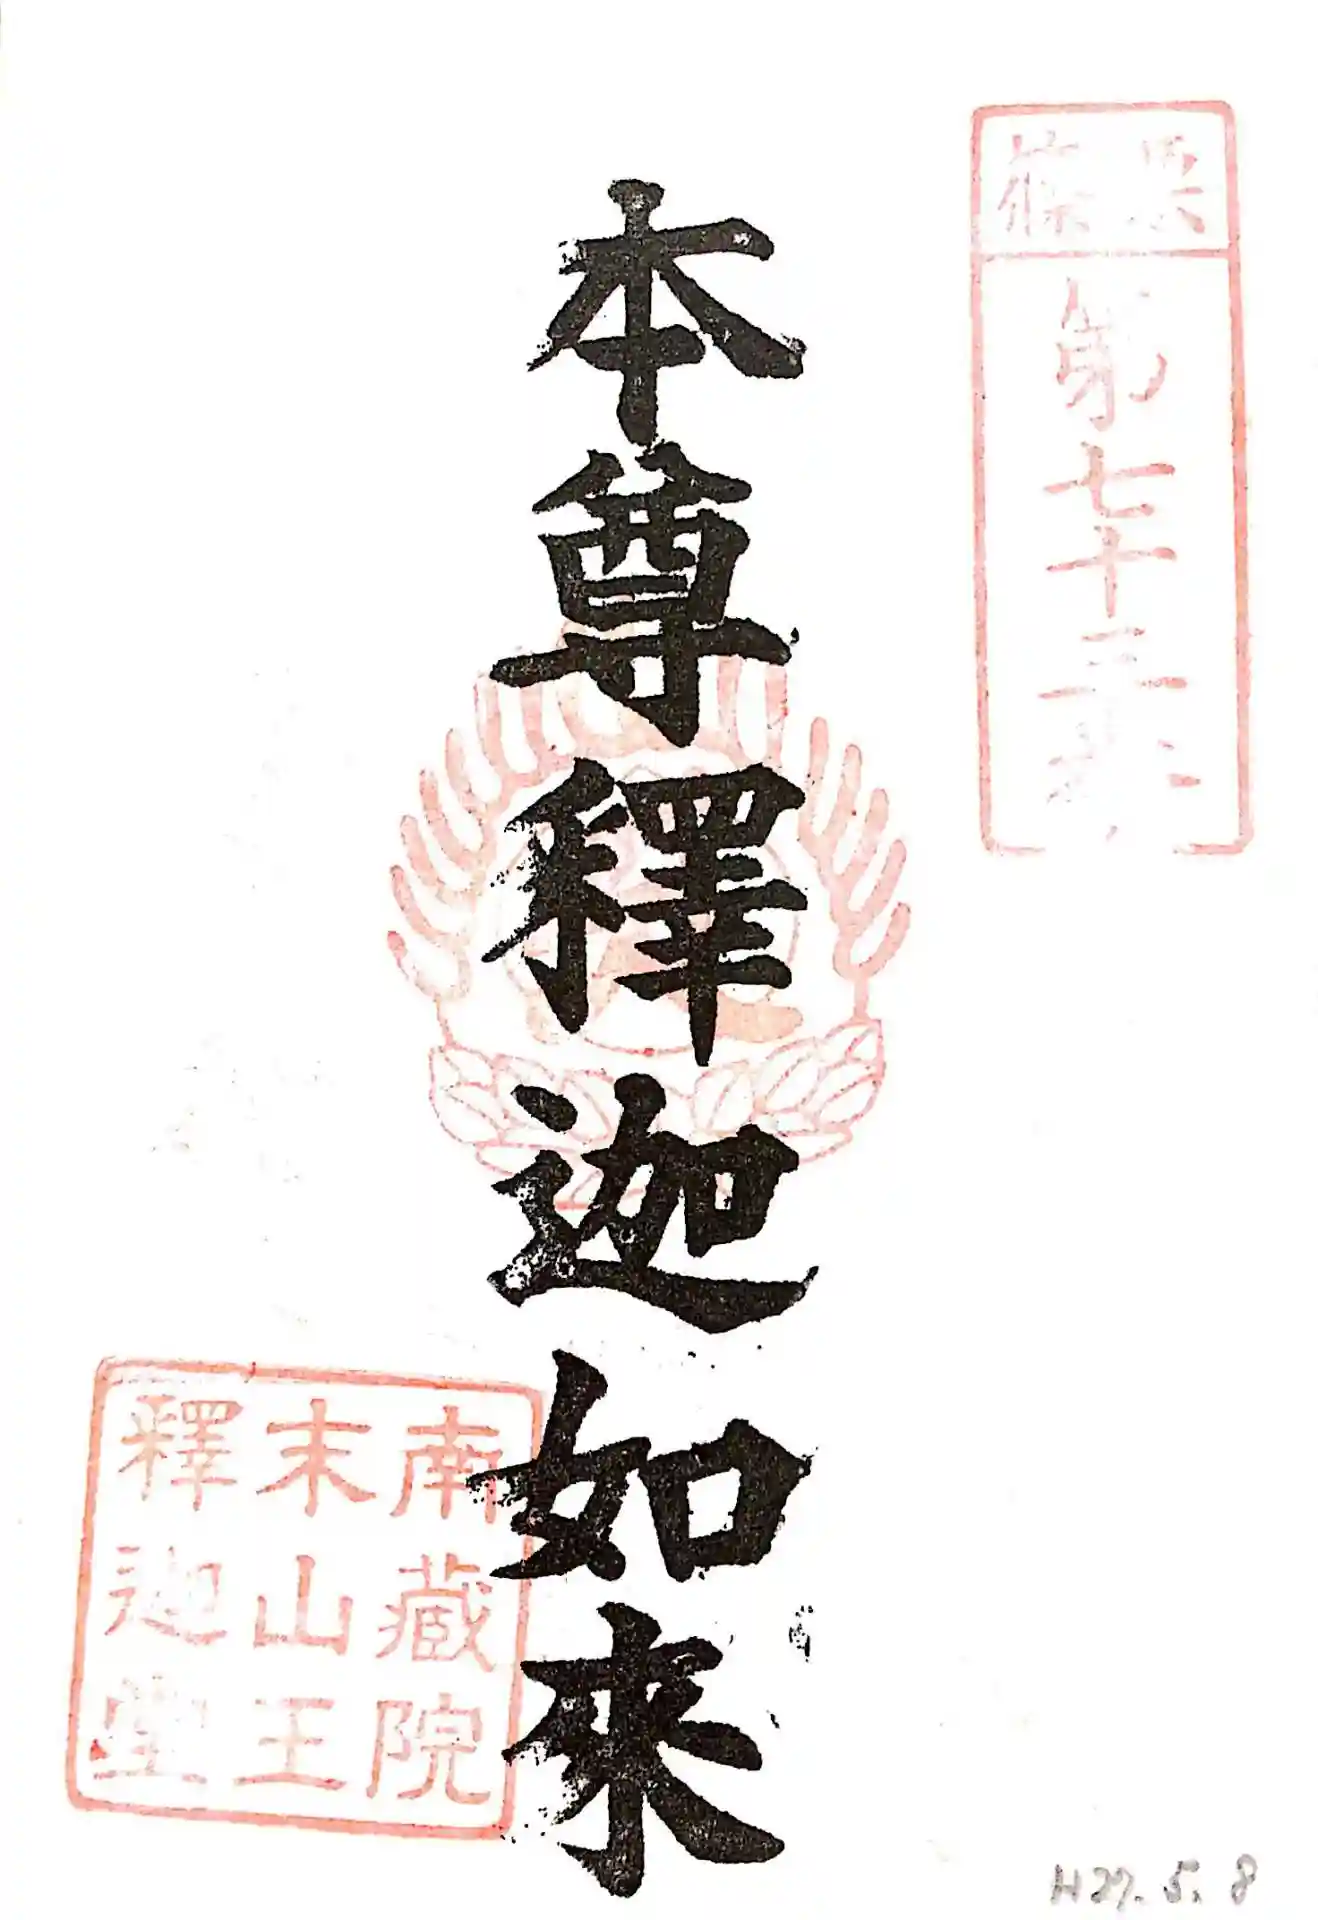 篠栗
第七十三番
本尊釋迦如来
南藏院
末山王
釋迦堂
H27.5.8